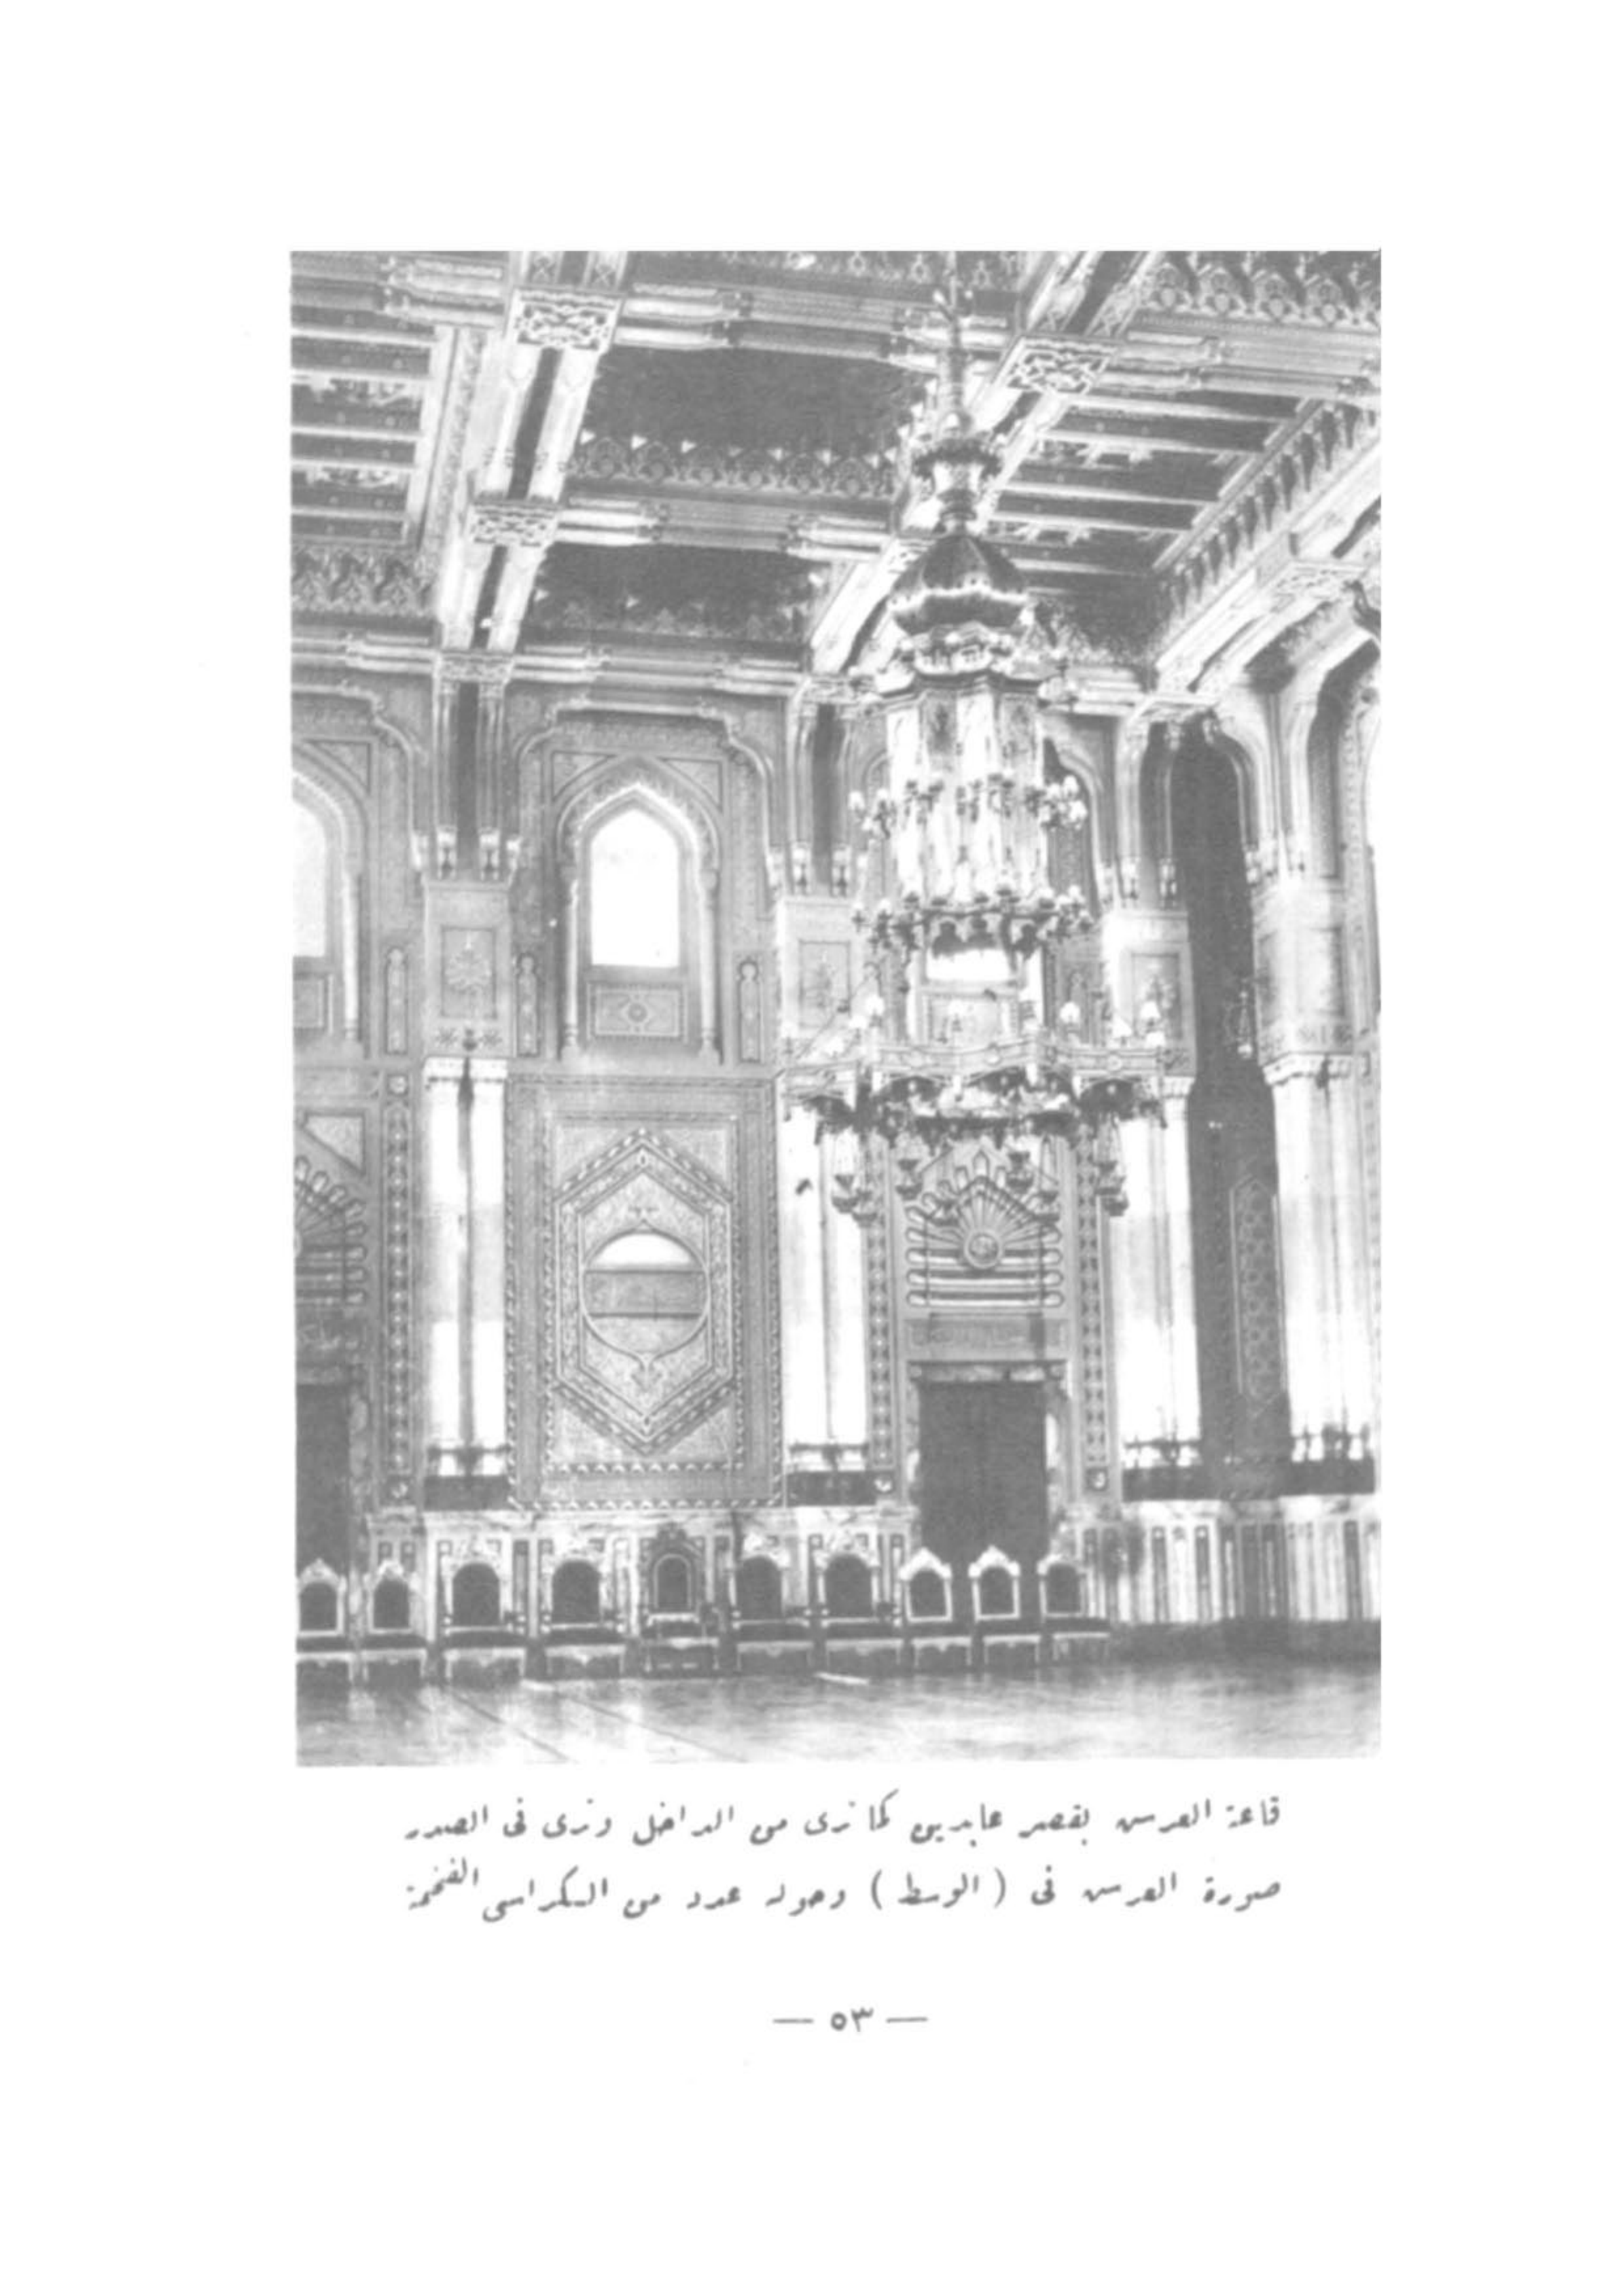 قاعة العرش بقصر عابدين كما ترى من الداخل وترى فى الصدر
صورة العرش فى (الوسط) وحوله عدد من الكراسى الفخمة
— ٥٣ —